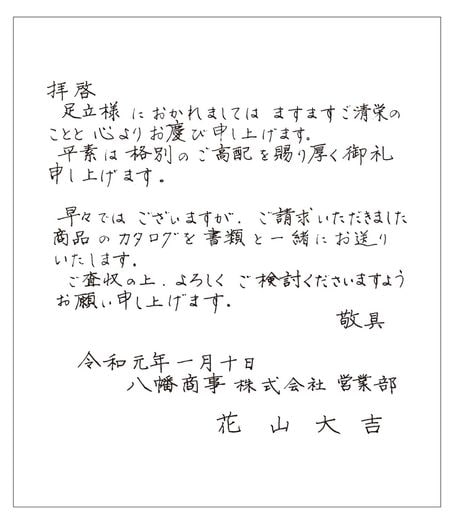 拝啓
足立様 におかれましては ますますご清栄の
ことと 心よりお慶び申し上げます。
平素は格別のご高配を賜り厚く御礼
申し上げます。
早々では ございますが、ご請求いただきました
商品のカタログを書類と一緒にお送り
いたします。
ご査収の上、よろしく ご検討くださいますよう
お願い申し上げます。
敬具
令和元年一月十日
八幡商事 株式会社 営業部
花 山 大 吉